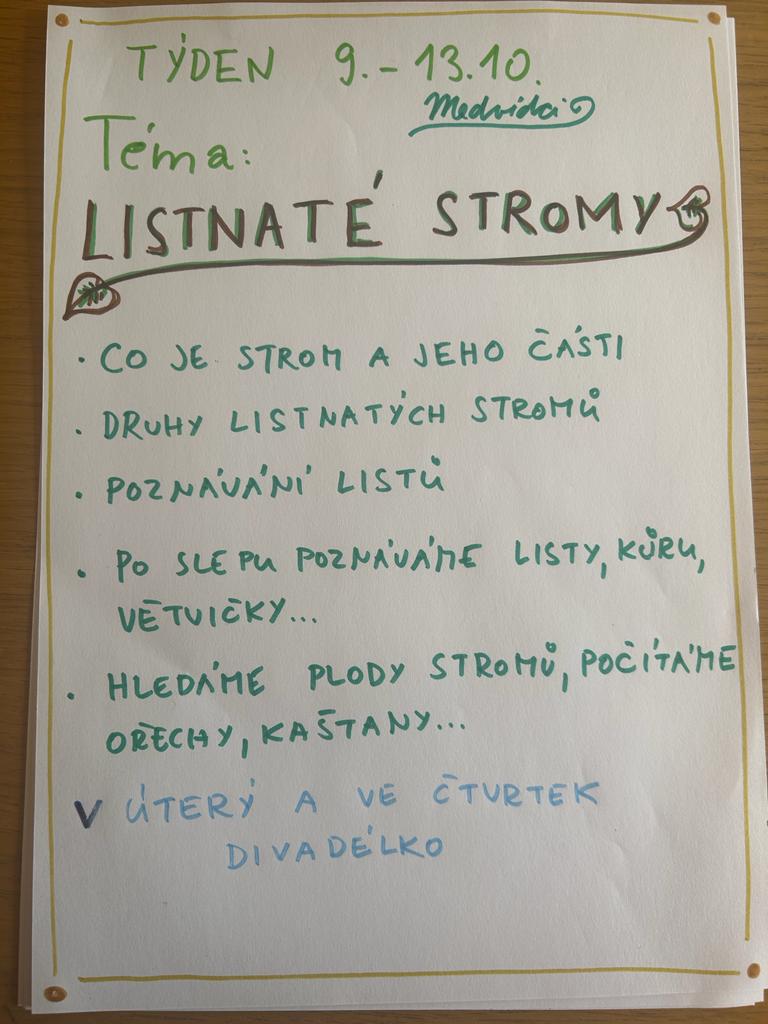 TÝDEN 9. - 13.10.
Medvídci
Téma:
LISTNATÉ STROMY
· CO JE STROM A JEHO ČÁSTI
· DRUHY LISTNATÝCH STROMŮ
· POZNÁVÁNÍ LISTŮ
· PO SLEPU POZNÁVÁME LISTY, KŮRU,
VĚTVIČKY...
· HLEDÁME PLODY STROMŮ, POČÍTÁME
OŘECHY, KAŠTANY...
V ÚTERÝ A VE ČTVRTEK
DIVADÉLKO